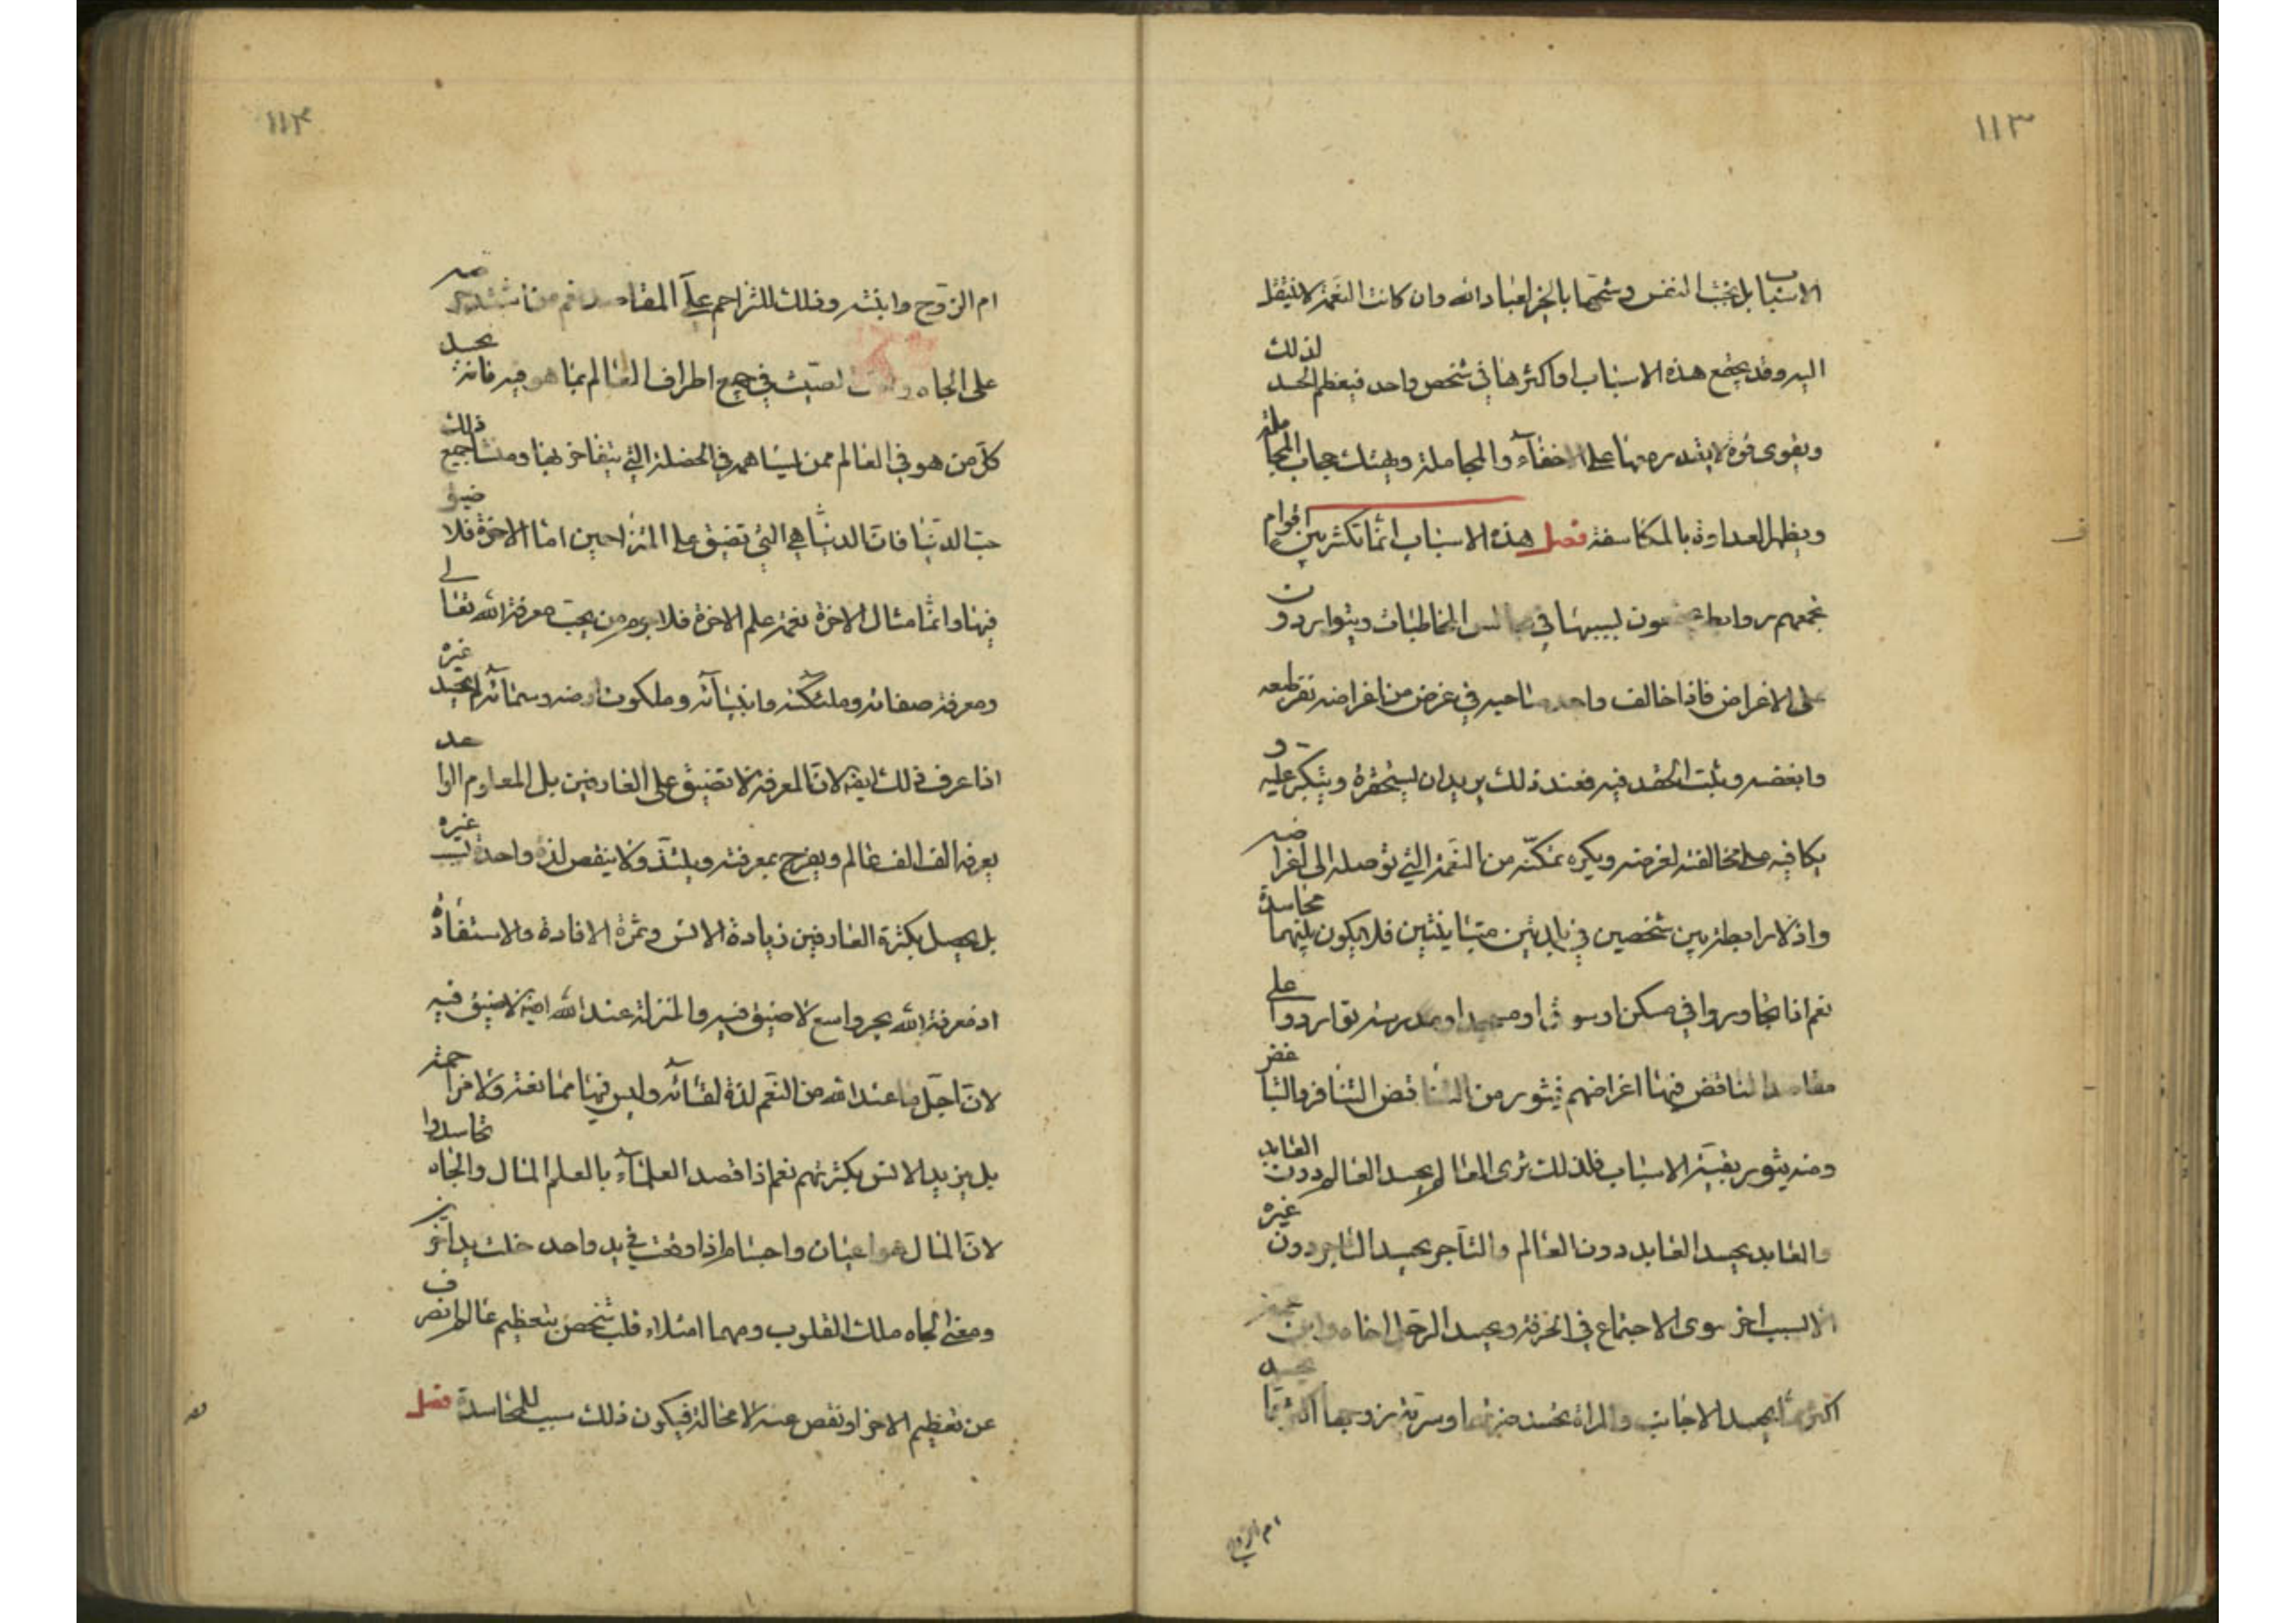 ١١٣
الاسباب بل بخبث النفس وشحها بالخير لعباد الله وان كانت النعمة لا ينتقل
اليه وقد يجتمع هذه الاسباب او اكثرها في شخص واحد فيعظم الحسد لذلك
ويقوى قوة لا يقدر معها على الاخفاء والمجاملة ويهتك حجاب المجاملة
ويظهر العداوة بالمكاشفة فصل هذه الاسباب انما تكثر بين اقوام
تجمعهم روابط يجتمعون لسببها في مجالس المخاطبات ويتواردون
على الاغراض فاذا خالف واحد صاحبه في غرض من اغراضه نفر طبعه
وابغضه ويثبت الحقد فيه فعند ذلك يريد ان يستحقره ويتكبر عليه و
يكافيه على مخالفته لغرضه ويكره تمكنه من النعمة التي توصله الى اغراضه
واذ لا رابطة بين شخصين في بلدتين متباينتين فلا يكون بينهما محاسدة
نعم اذا تجاوروا في مسكن او سوق او مسجد او مدرسة تواردوا على
مقاصد تناقض فيها اغراضهم فيثور من التناقض التنافر والتباغض
ومنه يثور بقية الاسباب فلذلك ترى العالم يحسد العالم دون العابد
والعابد يحسد العابد دون العالم والتاجر يحسد التاجر دون غيره
الا لسبب اخر سوى الاجتماع في الحرفة ويحسد الرجل اخاه وابن عمه
اكثر مما يحسد الاجانب والمراة تحسد ضرتها وسرية زوجها اكثر مما يحسد
ام الزوج
١١٤
ام الزوج وابنته وذلك للتزاحم على المقاصد نعم من اشتد حرصه
على الجاه وحب الصيت في جميع اطراف العالم بما هو فيه فانه يحسد
كل من هو في العالم ممن يساهمه في الخصلة التي يتفاخر بها ومنشا جميع ذلك
حب الدنيا فان الدنيا هي التي تضيق على المتزاحمين اما الاخرة فلا ضيق
فيها وانما مثال الاخرة نعمة علم الاخرة فلا جرم من يحب معرفة الله تعالى
ومعرفة صفاته وملئكته وانبيائه وملكوت ارضه وسمائه لم يحسد غيره
اذا عرف ذلك ايضا لان المعرفة لا تضيق على العارفين بل المعلوم الواحد
يعرفه الف الف عالم ويفرح بمعرفته ويلتذ ولا ينقص لذة واحد بسبب غيره
بل يحصل بكثرة العارفين زيادة الانس وثمرة الافادة والاستفادة
اذ معرفة الله بحر واسع لا ضيق فيه والمنزلة عند الله ايضا لا ضيق فيه
لان اجل ما عند الله من النعم لذة لقائه وليس فيها ممانعة ولا مزاحمة
بل يزيد الانس بكثرتهم نعم اذا قصد العلماء بالعلم المال والجاه تحاسدوا
لان المال هو اعيان واجسام اذا وقعت في يد واحد خلت يد اخرين
ومعنى الجاه ملك القلوب ومهما امتلاء قلب شخص بتعظيم عالم انصرف
عن تعظيم الاخر او نقص عنه لا محالة فيكون ذلك سبب للمحاسدة فصل